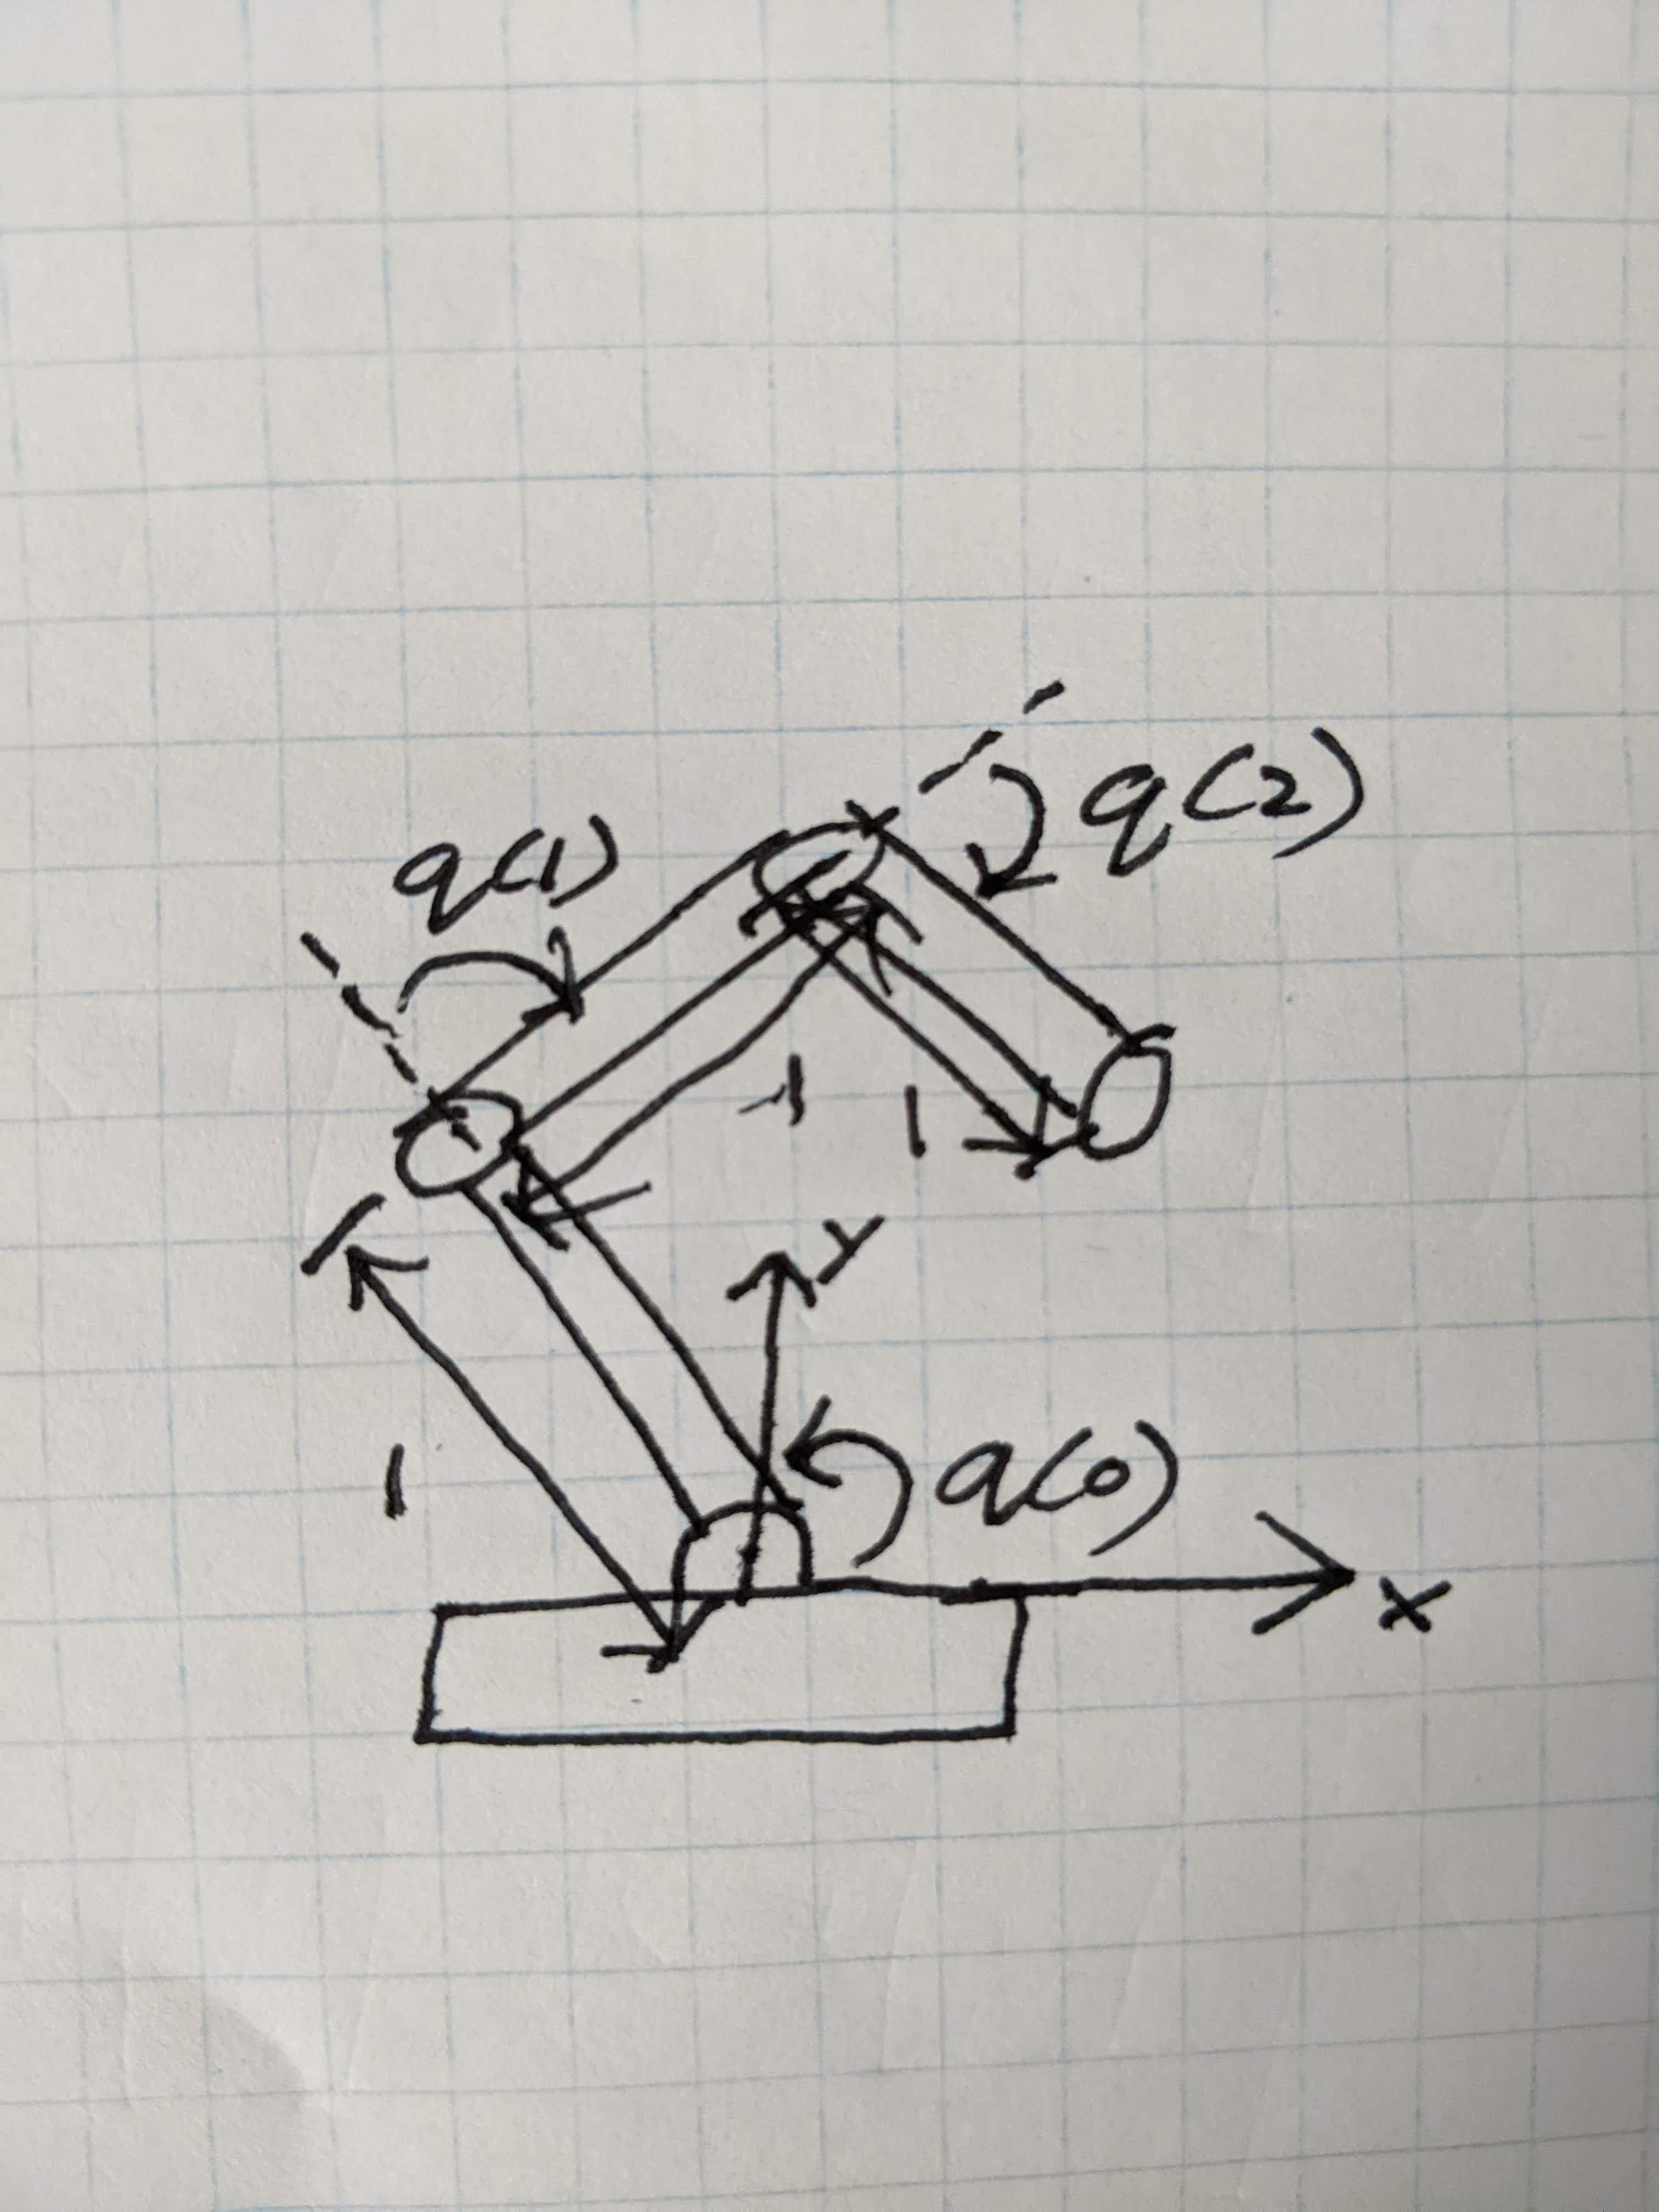 q(2)
q(1)
1
1
y
1
q(0)
x